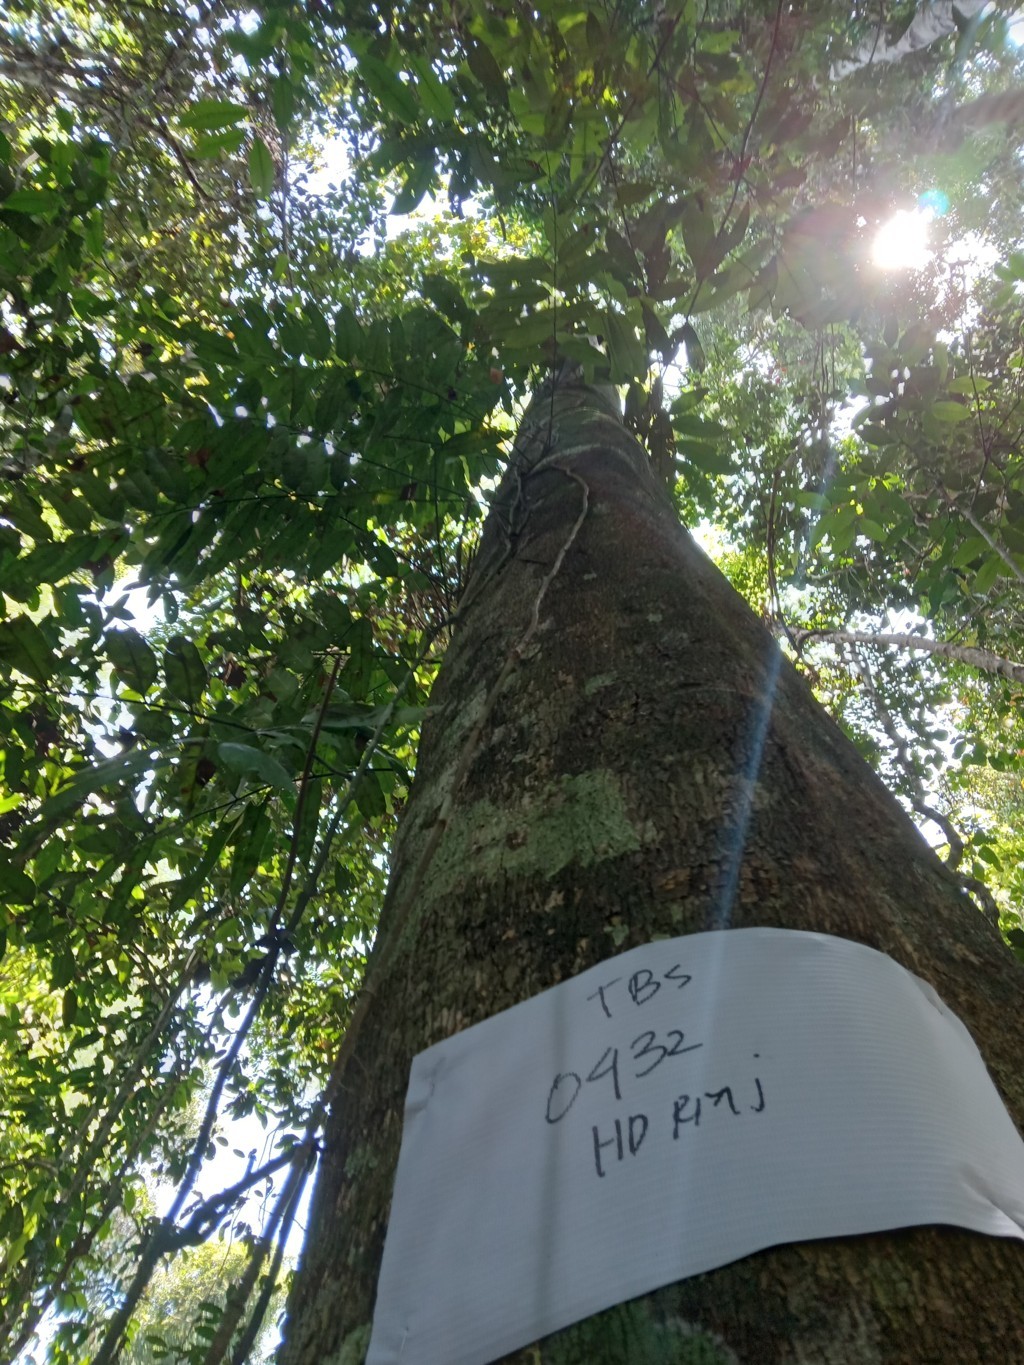 TBS
0432
HD RMJ